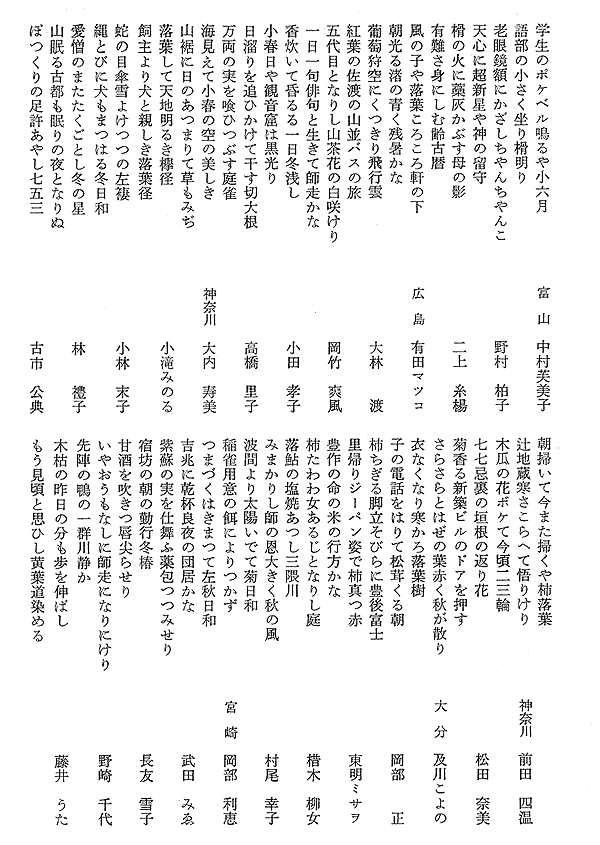 学生のポケベル鳴るや小六月　富山　中村芙美子
語部の小さく坐り榾明り
老眼鏡額にかざしちやんちやんこ　野村　柏子
天心に超新星や神の留守
榾の火に藁灰かぶす母の影　二上　糸楊
有難さ身にしむ齢古暦
風の子や落葉ころころ軒の下　広島　有田マツコ
朝光る渚の青く残暑かな
葡萄狩空にくつきり飛行雲　大林　渡
紅葉の佐渡の山並バスの旅
五代目となりし山茶花の白咲けり　岡竹　爽風
一日一句俳句と生きて師走かな
香炊いて昏るる一日冬浅し　小田　孝子
小春日や観音窟は黒光り
日溜りを追ひかけて干す切大根　高橋　里子
万両の実を喰ひつぶす庭雀
海見えて小春の空の美しき　神奈川　大内　寿美
山裾に日のあつまりて草もみぢ
落葉して天地明るき欅径　小滝みのる
飼主より犬と親しき落葉径
蛇の目傘雪よけつつの左褄　小林　末子
縄とびに犬もまつはる冬日和
愛憎のまたたくごとし冬の星　林　禮子
山眠る古都も眠りの夜となりぬ
ぼつくりの足許あやし七五三　古市　公典
朝掃いて今また掃くや柿落葉
辻地蔵寒さこらへて悟りけり　神奈川　前田　四温
木瓜の花ボケて今頃二三輪
七七忌裏の垣根の返り花　松田　奈美
菊香る新築ビルのドアを押す
さらさらとはぜの葉赤く秋が散り　大分　及川こよの
衣なくなり寒かろ落葉樹
子の電話をはりて松茸くる朝　岡部　正
柿ちぎる脚立そびらに豊後富士
里帰りジーパン姿で柿真つ赤　東明ミサヲ
豊作の命の米の行方かな
柿たわわ女あるじとなりし庭　楷木　柳女
落鮎の塩焼あつし三隈川
みまかりし師の恩大きく秋の風　村尾　幸子
波間より太陽いでて菊日和
稲雀用意の餌によりつかず　宮崎　岡部　利恵
つまづくはきまつて左秋日和
吉兆に乾杯良夜の団居かな　武田　みゑ
紫蘇の実を仕舞ふ薬包つつみせり
宿坊の朝の勤行冬椿　長友　雪子
甘酒を吹きつ唇尖らせり
いやおうもなしに師走になりにけり　野崎　千代
先陣の鴨の一群川静か
木枯の昨日の分も歩を伸ばし　藤井　うた
もう見頃と思ひし黄葉道染める